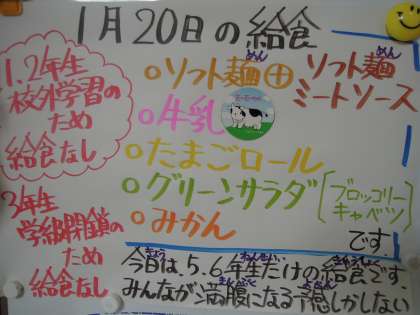 1月20日の給食
1,2年生
校外学習の
ため
給食なし
3年生
学級閉鎖の
ため
給食なし
○ソフト麺⊕ソフト麺
めん
めん
ミートソース
○牛乳
○たまごロール
○グリーンサラダ
ブロッコリー
キャベツ
○みかん
です。
今日は、5.6年生だけの給食です。
みんなが満腹になる予感しかしない